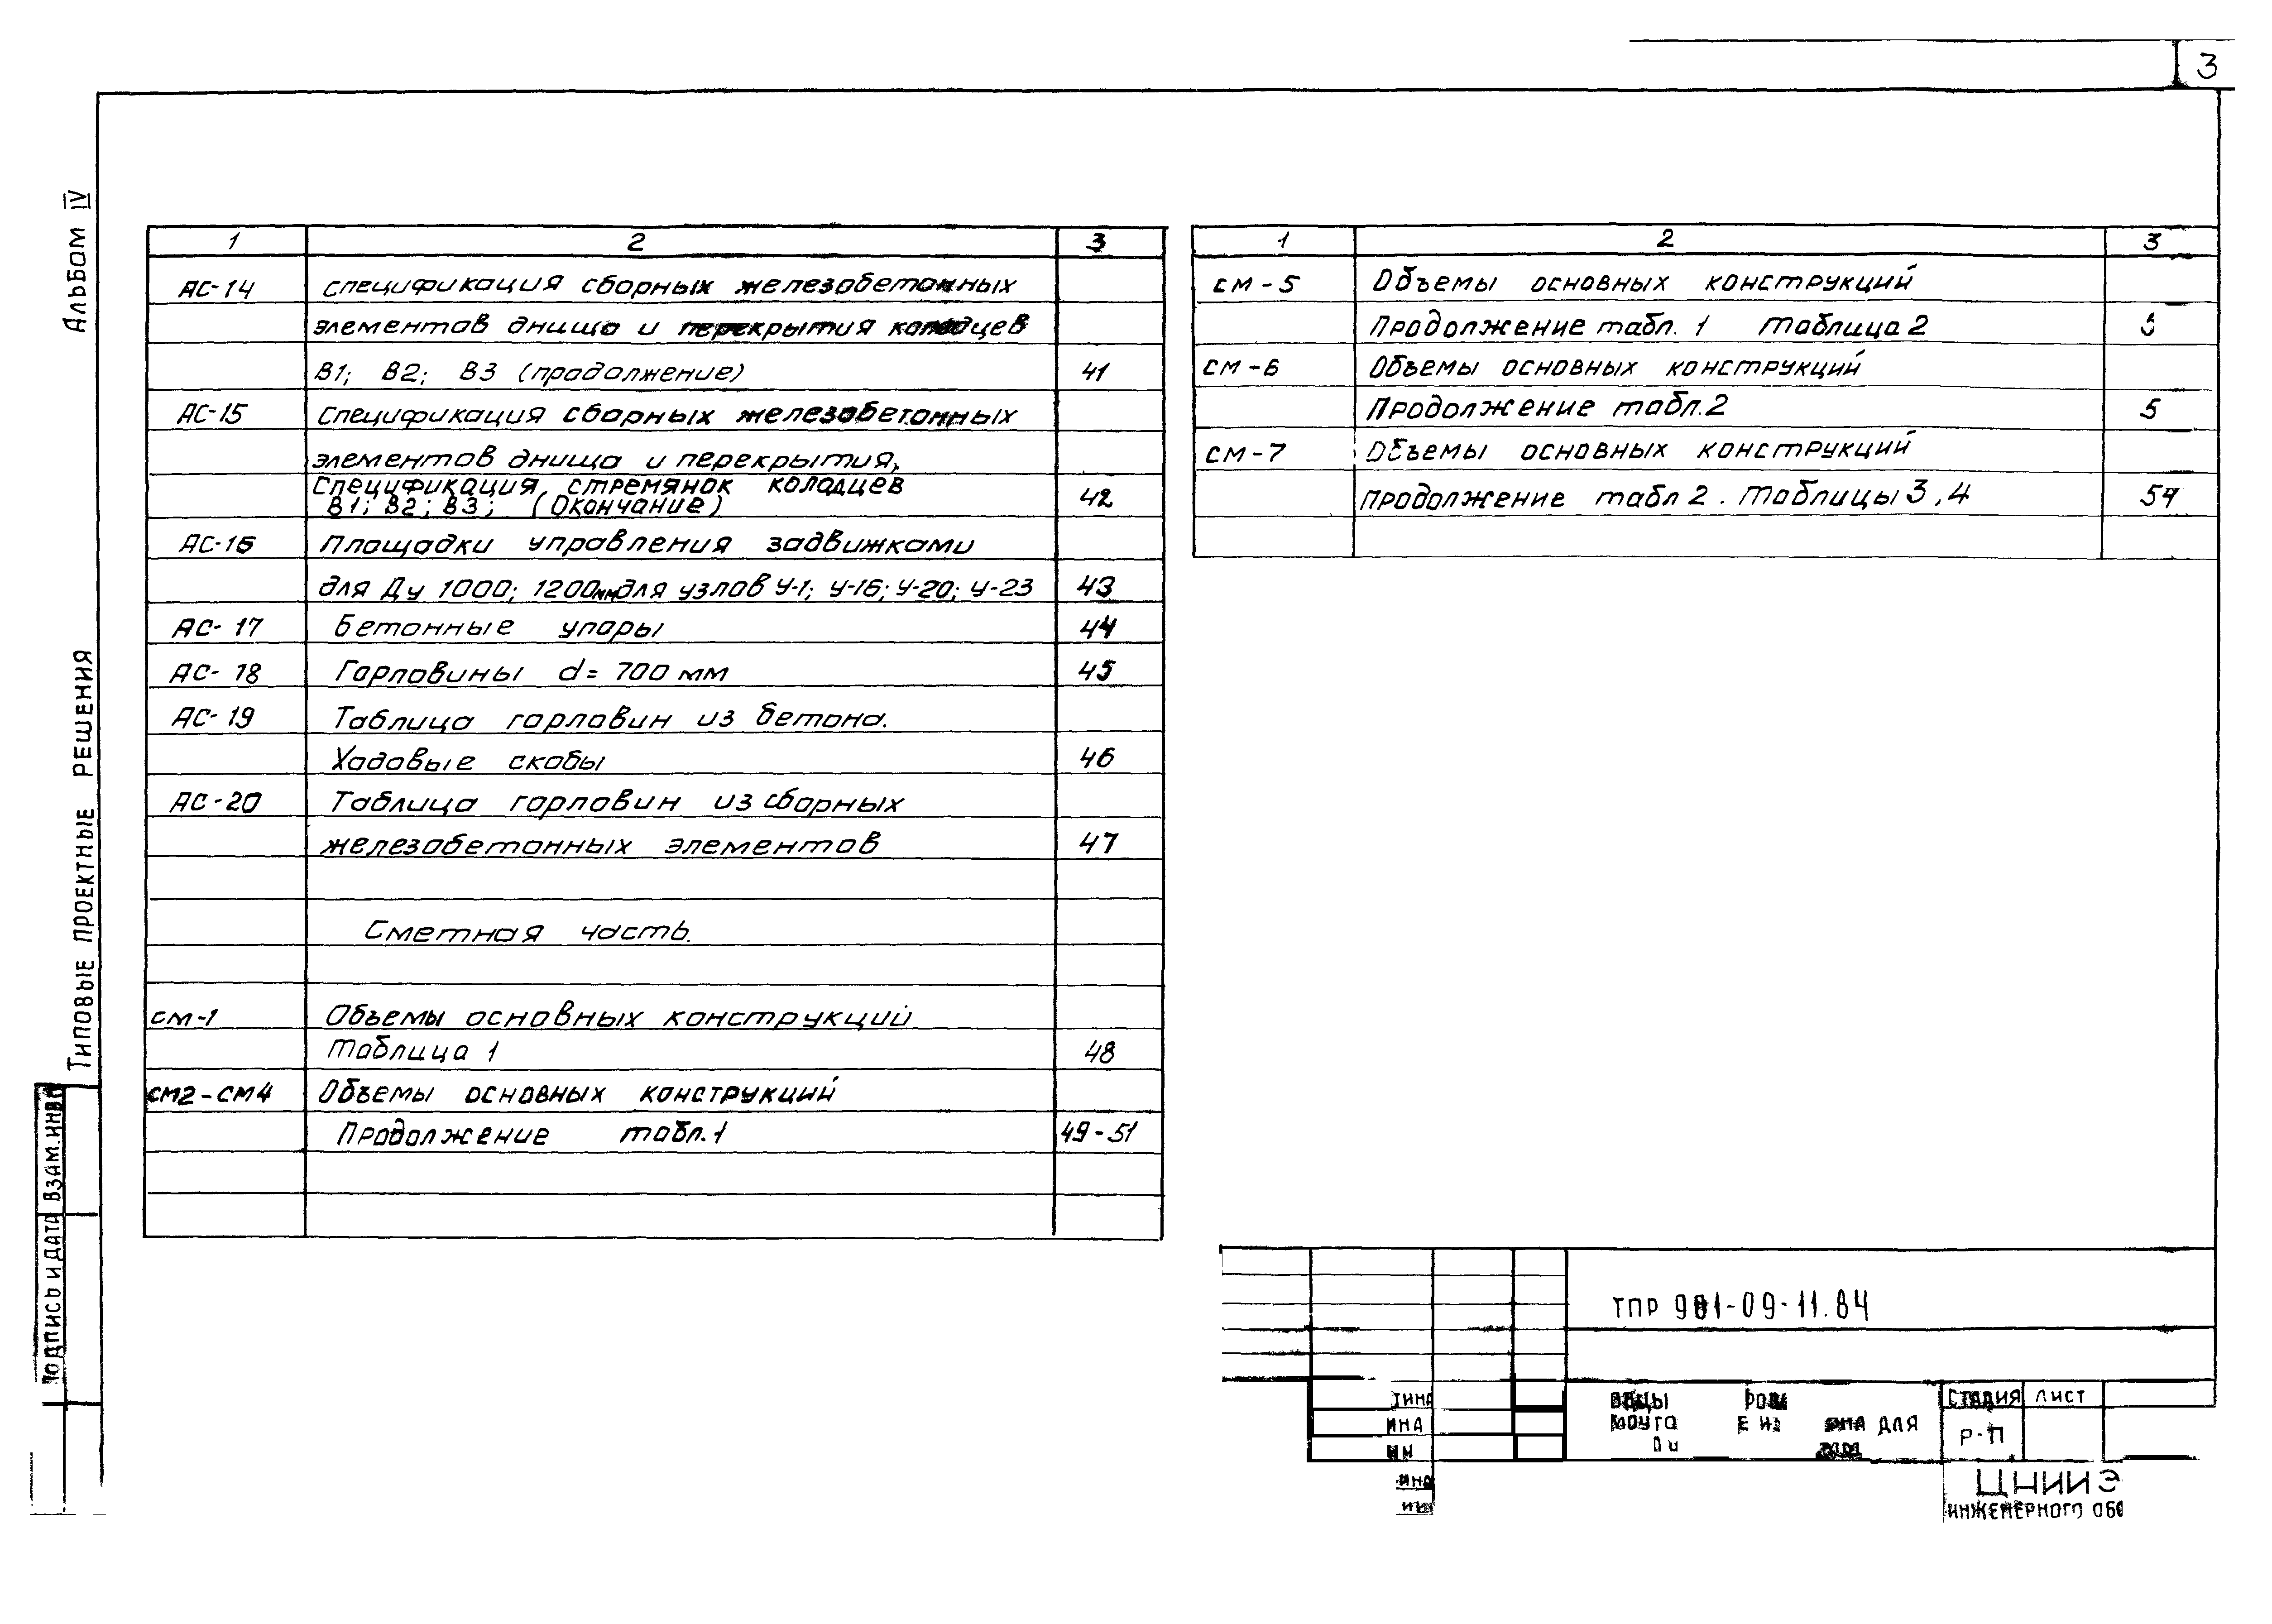 3
Альбом IV
Типовые проектные решения
Взам. инв
Подпись и дата
1 2 3
АС-14 Спецификация сборных железобетонных
элементов днища и перекрытия колодцев
В1; В2; В3 (продолжение) 41
АС-15 Спецификация сборных железобетонных
элементов днища и перекрытия,
Спецификация стремянок колодцев
В1; В2; В3; (Окончание) 42
АС-16 Площадки управления задвижками
для Ду 1000; 1200мм для узлов У-1; У-16; У-20; У-23 43
АС-17 Бетонные упоры 44
АС-18 Горловины d=700 мм 45
АС-19 Таблица горловин из бетона.
Ходовые скобы 46
АС-20 Таблица горловин из сборных
железобетонных элементов 47
Сметная часть.
СМ-1 Объемы основных конструкций
Таблица 1 48
СМ2-СМ4 Объемы основных конструкций
Продолжение табл.1 49-51
1 2 3
СМ-5 Объемы основных конструкций
Продолжение табл. 1 Таблица 2 5
СМ-6 Объемы основных конструкций
Продолжение табл.2 5
СМ-7 Объемы основных конструкций
Продолжение табл 2. Таблицы 3,4 54
ТПР 901-09-11.84
Стадия Лист
для
Р-П
ЦНИИЭ
инженерного обо